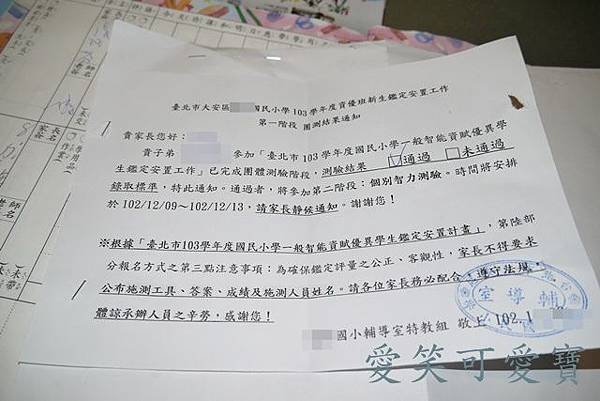 臺北市大安區 國民小學103學年度資優班新生鑑定安置工作
第一階段 團測結果通知
貴家長您好:
貴子弟 參加「臺北市103學年度國民小學一般智能資賦優異學
生鑑定安置工作」已完成團體測驗階段,測驗結果 ☑通過 □未通過
錄取標準,特此通知。通過者,將參加第二階段:個別智力測驗。時間將安排
於102/12/09~102/12/13,請家長靜候通知。謝謝您!
※根據「臺北市103學年度國民小學一般智能資賦優異學生鑑定安置計畫」,第陸部
分報名方式之第三點注意事項:為確保鑑定評量之公正、客觀性,家長不得要求
公布施測工具、答案、成績及施測人員姓名。請各位家長務必配合,遵守法規,
體諒承辦人員之辛勞,感謝您!
室導輔
國小輔導室特教組 敬上 102.1
愛笑可愛寶